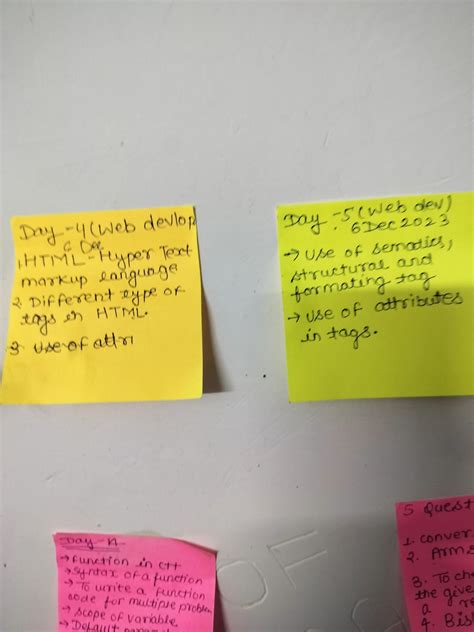 Day -4(Web devlop
6 Dec
1.HTML-Hyper Text
markup language
2. Different type of
tags in HTML.
3 use of attri
Day -5(Web dev)
6Dec2023
→ Use of semadics,
structural and
formating tag
→ use of attributes
in tags.
→Function in C++
→Syntax of a function
→To write a function
code for multiple problem
→Scope of variable
5 Quest
1. conver
2. Arms
3. To che
the give
a